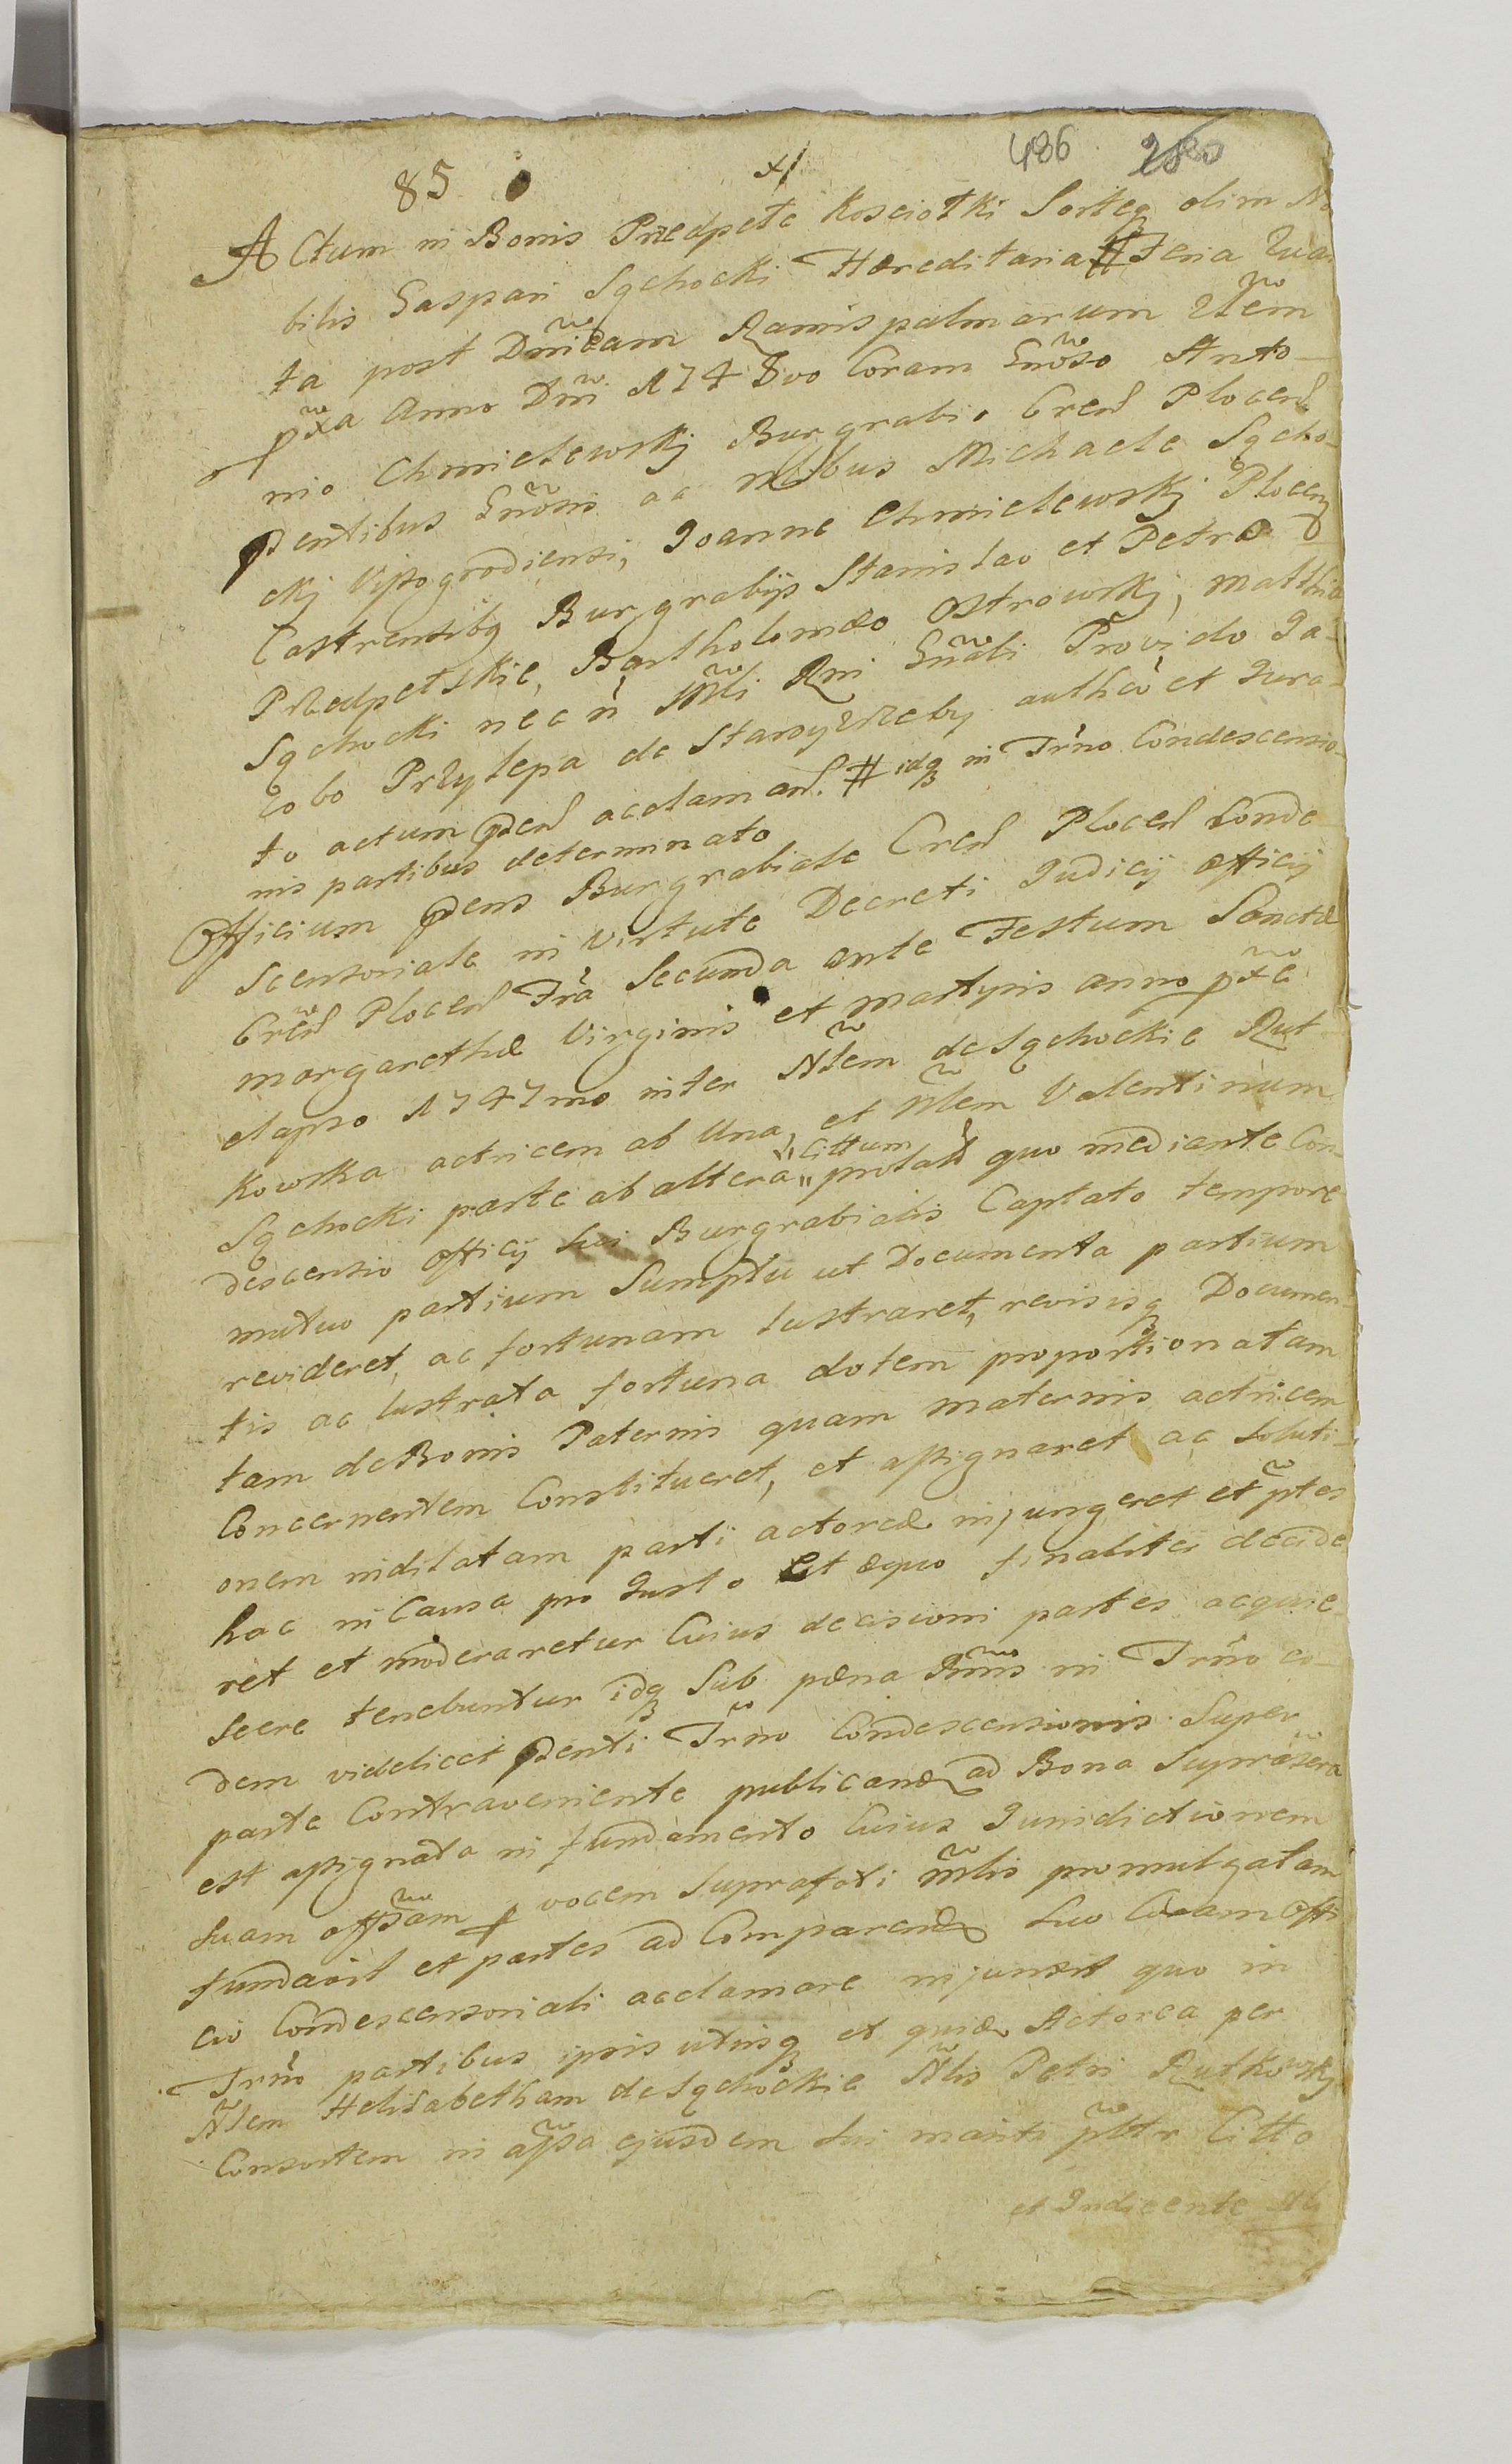 85 x/ 486 280
Actum in Bonis Przedpełe Kosciołki Sorteq3 olim No-
bilis Gaspari Sąchocki Hæreditaria # Feria Quar
ta post Dnicam Ramispalmarum Item
pxa Anno Dni 1748vo Coram Gnoso Anto-
nio Chmielewskj Burgrabio Cren Plocen
pdentibus Gnosis ac Nlibus Michaele Sącho-
ckj Vissogrodiensi, Joanne Chmielewskj Plocen
Castrensibq Burgrabijs Stanislao et Petro D
Przedpełskie, Bartholomæo Ostrowskj, Matthia
Sąchocki necn Mli Rni Gnali Provido Ja-
cobo Przylepa de Staroyzreby authco et Jura-
to actum pden aclaman. # idq3 in Trno Condescensio-
nis partibus determinato
Officium pdens Burgrabiale Cren Plocen Conde
scensoriale in virtute Decreti Judicij officij
Cren Plocen Fra Secunda ante Festum Sanctæ
Margarethæ Virginis et Martyris anno pxe
elapso 1747mo inter Nlem de Sąchockie Rut-
kowska actricem ab Una, et Nlem Valentinum
Sąchocki parte ab altera "cittum" prolati quo mediante Con-
descensio officij sui Burgrabialis Captato tempore
mutuo partium Sumptu ut Documenta partium
revideret, ac fortunam lustraret, revisisq3 Documen-
tis ac lustrata fortuna dotem proportionatam
tam de Bonis Paternis quam maternis actricem
Concernentem Constitueret, et assignaret ac soluti-
onem indilatam parti actoreæ injungeret et ptes
hac in Causa pro Justo Et æquo finaliter decide
ret et moderaretur Cuius decisioni partes acquie-
scere tenebuntur idq3 Sub pæna Bnnis in Trno eo-
dem videlicet pdenti Trno Condescensionis Super
parte Contraveniente publicandæ ad Bona Supra
est assignata in fundamento Cuius Jurisdictionem
suam offsam p vocem suprafati mlis promulgatam
fundavit et partes ad Comparendum suo Coram offi
cio Condescensoriali acclamare injunxit quo in
Trno partibus ipsis utrisq3 et quidem Actorea per
Nlem Helisabetham de Sąchockie Nlis Petri Rutkowskj
Consortem in assa ejusdem sui mariti pltr Citto
et Indicente Ab